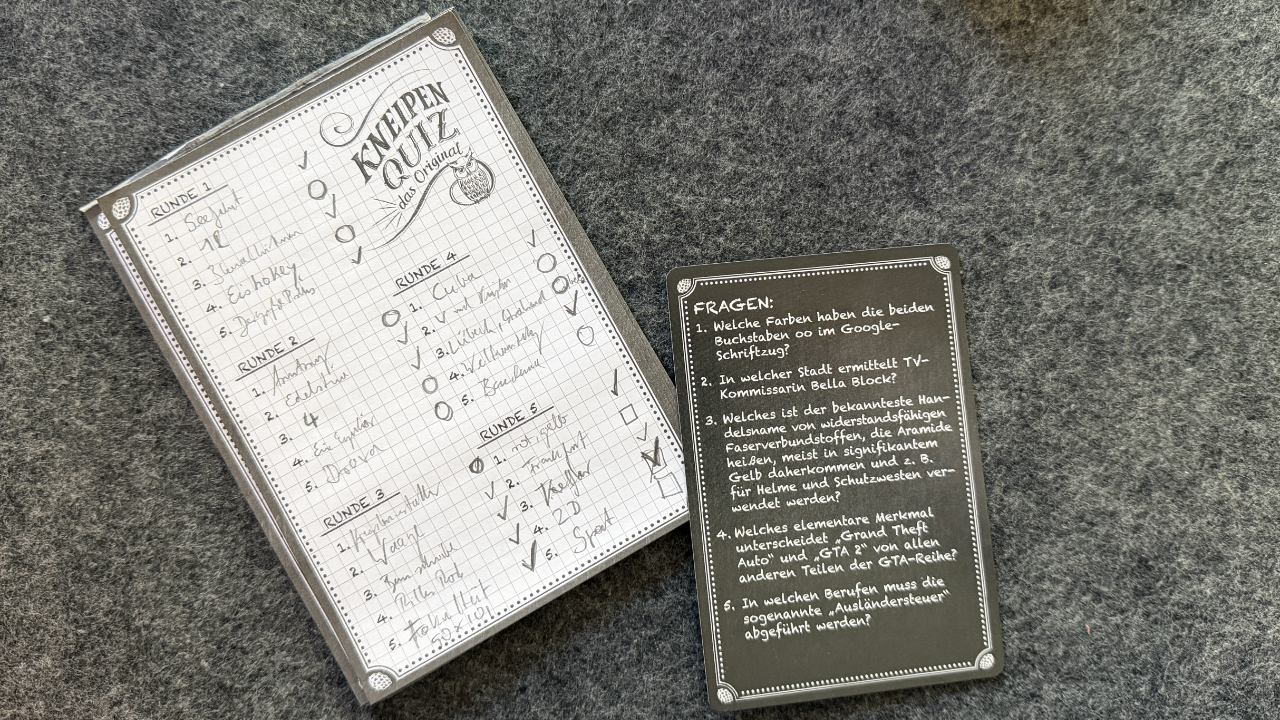 KNEIPEN
QUIZ
das Original
RUNDE 1
1. Seefahrt
2. 12
3.
4. Eishokey
5.
RUNDE 2
1. Armdrang
2. Edelsteine
3. 4
4. Eine
5. Drava
RUNDE 3
1.
2. Vaart
3.
4. Rotes
5. Fokalität
50 x 101
RUNDE 4
1. Cuba
2. V
3. Lübeck,
4.
5. Bandana
RUNDE 5
1. rot, gelb
2. Frankfurt
3. Kevlar
4. 2D
5. Sport
FRAGEN:
1. Welche Farben haben die beiden
Buchstaben oo im Google-
Schriftzug?
2. In welcher Stadt ermittelt TV-
Kommissarin Bella Block?
3. Welches ist der bekannteste Han-
delsname von widerstandsfähigen
Faserverbundstoffen, die Aramide
heißen, meist in signifikantem
Gelb daherkommen und z. B.
für Helme und Schutzwesten ver-
wendet werden?
4. Welches elementare Merkmal
unterscheidet „Grand Theft
Auto“ und „GTA 2“ von allen
anderen Teilen der GTA-Reihe?
5. In welchen Berufen muss die
sogenannte „Ausländersteuer“
abgeführt werden?